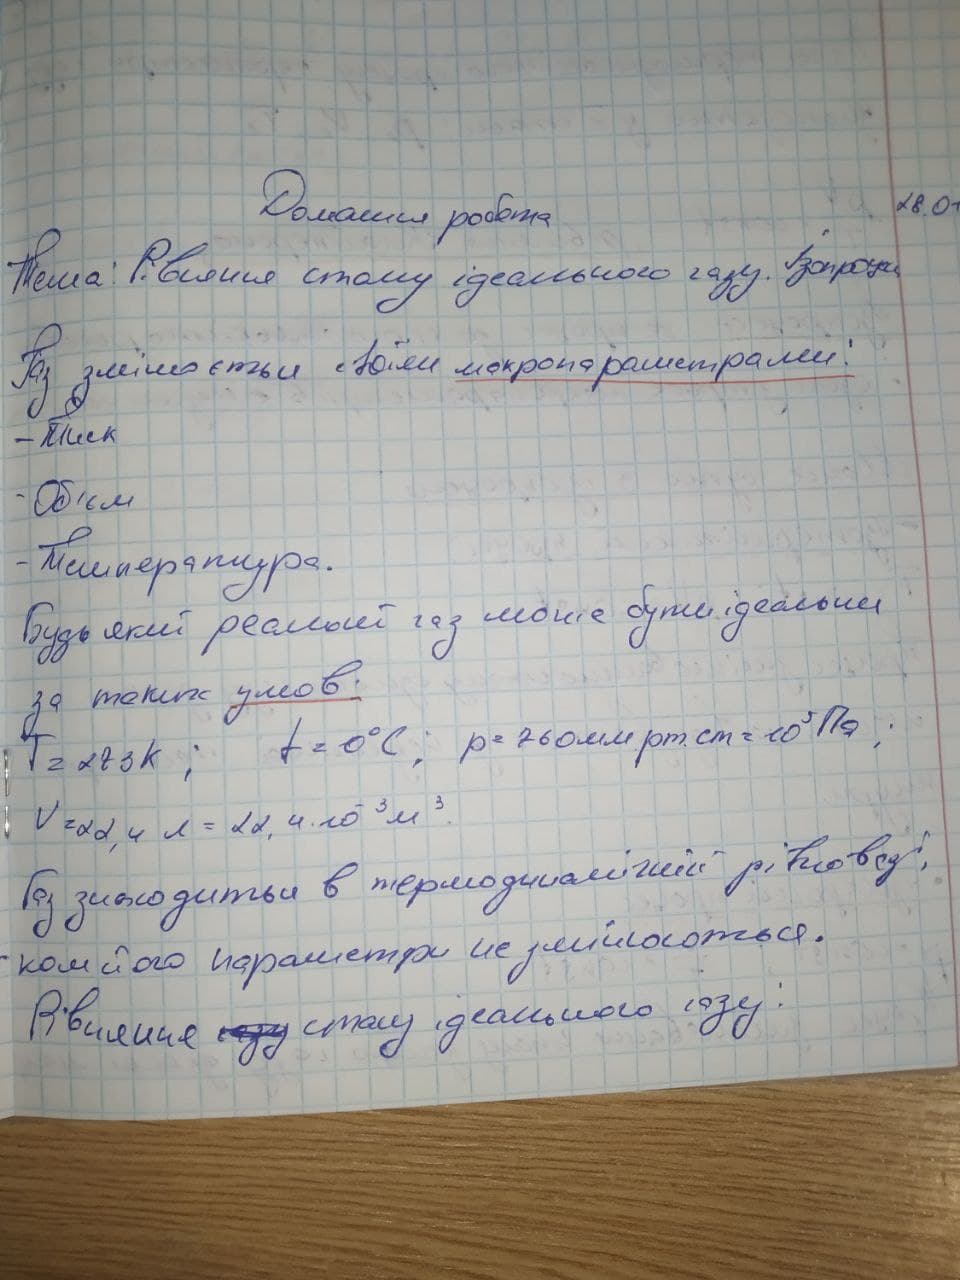 Домашня робота
28.01
Тема: Рівняння стану ідеального газу. Ізопроцеси
Газ змінюється своїми макропараметрами:
- Тиск
- Об'єм
- Температура.
Будь який реальний газ може бути ідеальним
за таких умов:
T = 273 K ; t = 0°C ; p = 760 мм рт. ст = 10⁵ Па ;
V = 22,4 л = 22,4 · 10⁻³ м³.
Газ знаходиться в термодинамічній рівновазі,
коли його параметри не змінюються.
Рівняння стану ідеального газу: